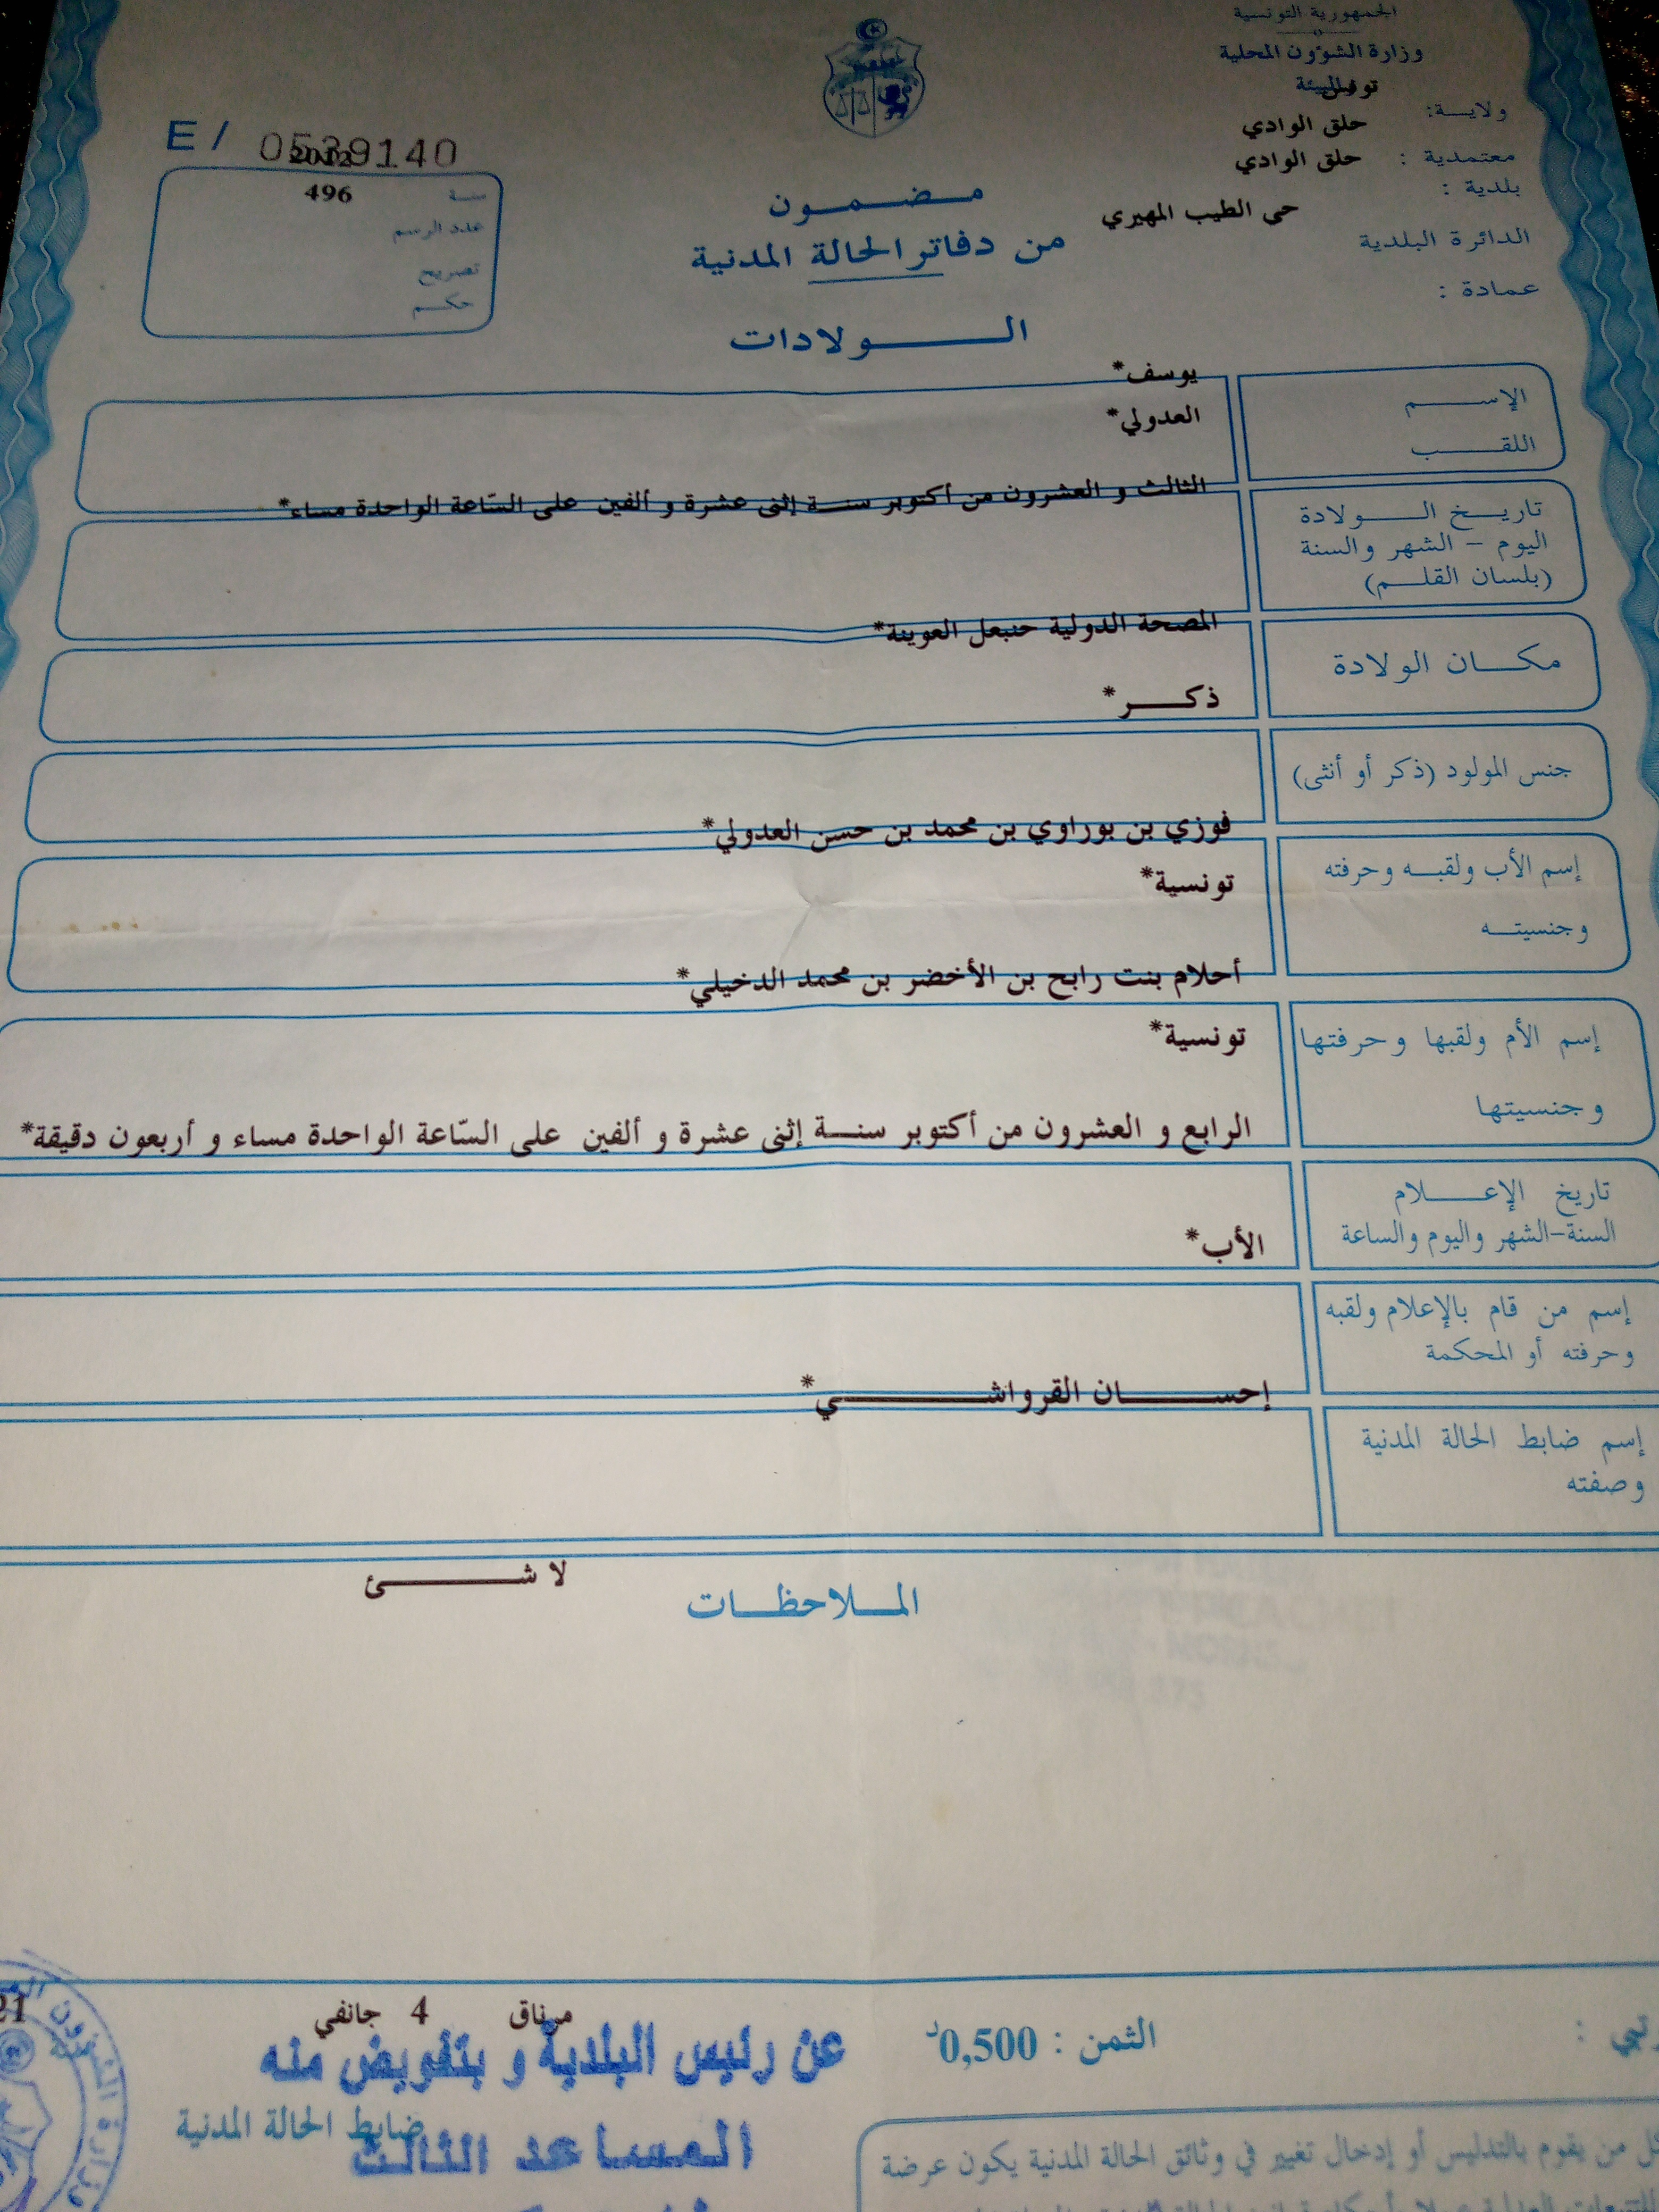 الجمهورية التونسية
وزارة الشؤون المحلية
والبيئة
تونس
ولايـــة:
حلق الوادي
معتمدية :
حلق الوادي
بلدية :
حى الطيب المهيري
الدائرة البلدية
عمادة :
E / 0539140
2012
سنـــة
496
عدد الرسم
تصريح
حكـــم
مـــضـــمـــون
من دفاتر الحالة المدنية
الـــــولادات
يوسف*
الإســـــم
العدولي*
اللقـــــب
الثالث و العشرون من أكتوبر سنـــة إثنى عشرة و ألفين على السّاعة الواحدة مساء*
تاريـــخ الـــــولادة
اليوم – الشهر والسنة
(بلسان القلـــم)
المصحة الدولية حنبعل العوينة*
مكـــان الولادة
ذكـــر*
جنس المولود (ذكر أو أنثى)
فوزي بن بوراوي بن محمد بن حسن العدولي*
إسم الأب ولقبـــه وحرفته
تونسية*
وجنسيتـــه
أحلام بنت رابح بن الأخضر بن محمد الدخيلي*
إسم الأم ولقبها وحرفتها
تونسية*
وجنسيتها
الرابع و العشرون من أكتوبر سنـــة إثنى عشرة و ألفين على السّاعة الواحدة مساء و أربعون دقيقة*
تاريخ الإعـــــلام
السنة-الشهر واليوم والساعة
الأب*
إسم من قام بالإعلام ولقبه
وحرفته أو المحكمة
إحســـــان القرواشـــــــي*
إسم ضابط الحالة المدنية
وصفته
لا شـــــــئ
المـــلاحظـــات
مرناق 4 جانفي
21
الثمن : 0,500د
عن رئيس البلدية و بتفويض منه
ضابط الحالة المدنية
المساعد الثالث
كل من يقوم بالتدليس أو إدخال تغيير في وثائق الحالة المدنية يكون عرضة